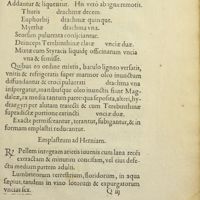 Addantur & liquentur. His vero ab igne motis.
Thuris drachmæ decem.
Euphorbij drachmæ quinque.
Myrrhæ drachma vna.
Seorsim puluerata conijciantur.
Deinceps Terebinthinæ claræ vnciæ duæ.
Mox cum Styracis liquidæ officinarum vncia
vna & semisse.
Quibus eo ordine mistis, baculo ligneo versatis,
vnitis & refrigeratis super marmor oleo inunctum
diffundantur & cum oleo drachma vna
inspergantur, manibusque oleo inunctis fiant Mag-
daliæ, ex media tantum parte quæ
pulueris altera, & cum Terebinthinæ
supradictæ portione extincti vnciæ duæ.
Exacte permisceantur, terantur, subigantur, & in
formam emplastri reducantur.
Emplastrum ad Herniam.
Pellem integram arietis iuuenis cum lana recens
extractam & minutim concisam, vel eius defe-
ctu medium partem aduliti.
Lumbricorum terrestrium, floridorum, in aqua
sæpius, tandem in vino lotorum & expurgatorum
vncias sex. Q iij